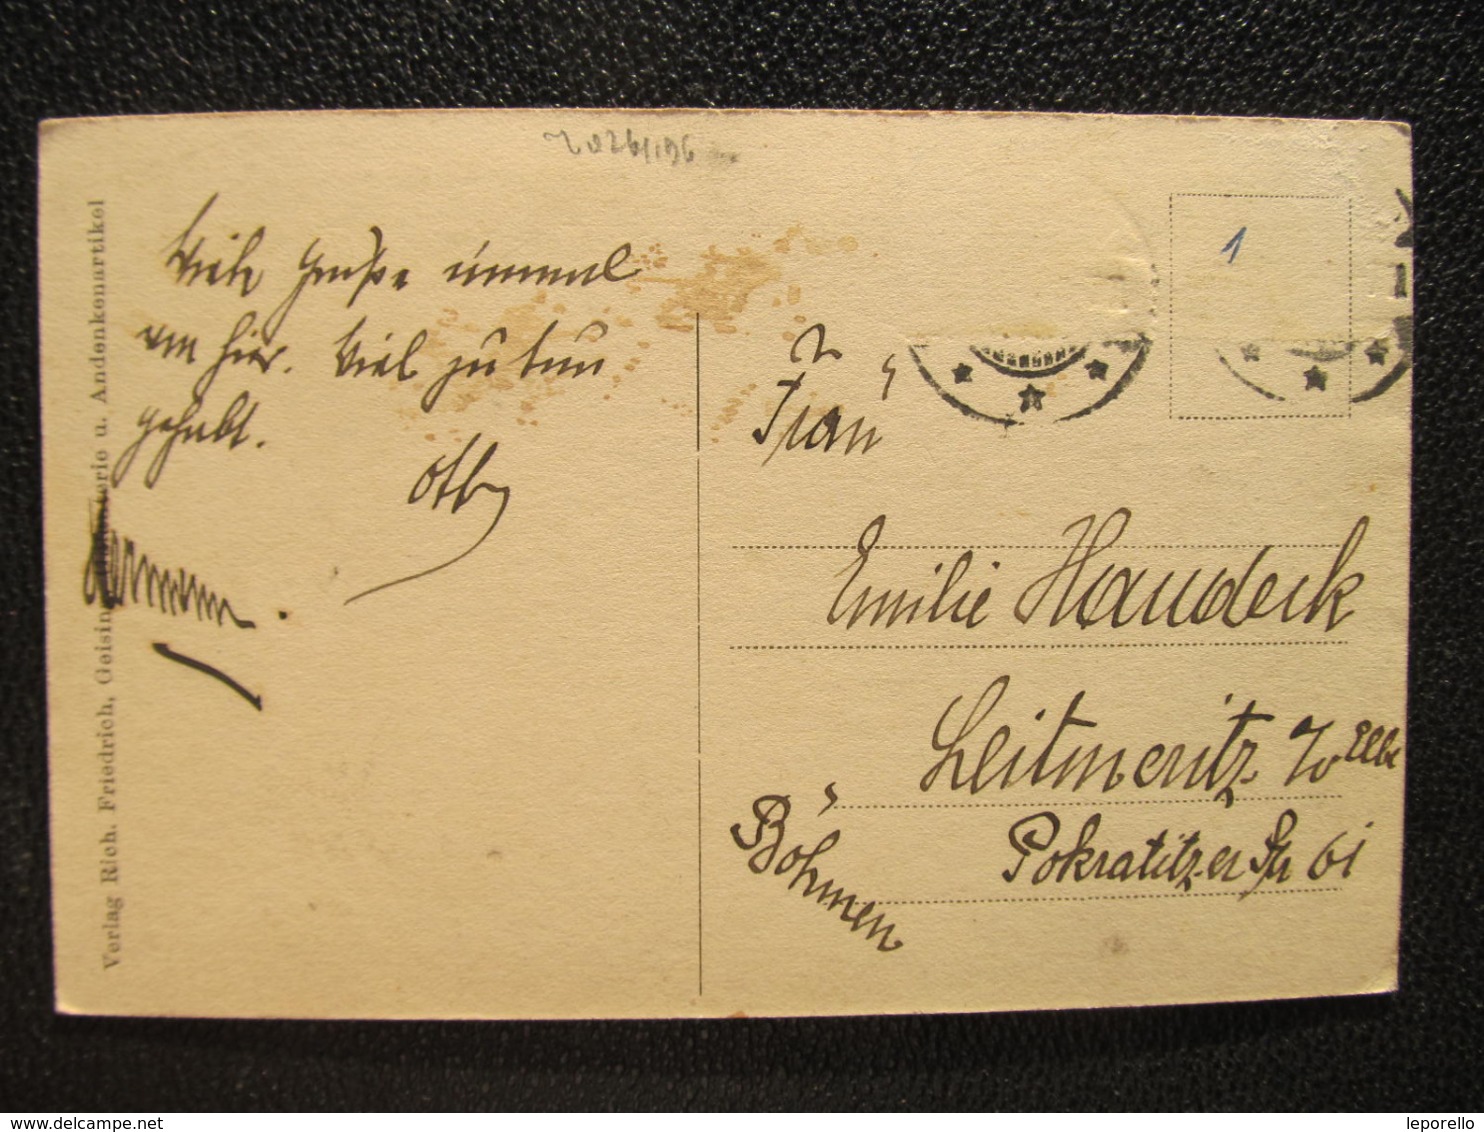 Viele Grüße einmal
von hier. Viel zu tun
gehabt.
Otto
Frau
Emilie Haudeck
Leitmeritz Elbe
Pokratitzer Str 61
Böhmen
Verlag Rich. Friedrich, Geising, u. Andenkenartikel
1
leporello